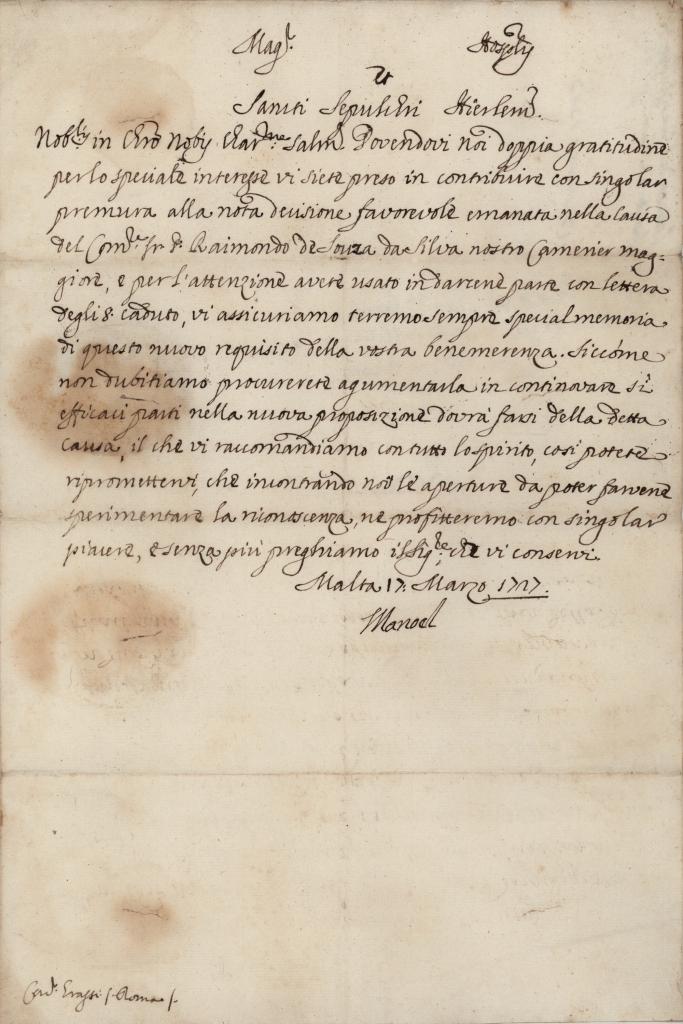 Mag.r Hosp.lis
et
Sancti Sepulchri Hierlem.
Nob.lis in Chro Nobis Char.me Salm. Dovendovi noi doppia gratitudine
per lo speciale interesse vi siete preso in contribuire con singolar
premura alla nota decisione favorevole emanata nella Causa
del Com.r fr. D. Raimondo de Souza da Silva nostro Camerier mag=
giore, e per l'attenzione avete usato in darcene parte con lettera
degli 8. caduto, vi assicuriamo terremo sempre special memoria
di questo nuovo requisito della vostra benemerenza. Siccome
non dubitiamo procurerete agumentarla in continovare sì
efficaci parti nella nuova proposizione dovrà farsi della detta
Causa, il che vi raccomandiamo con tutto lo spirito, così potete
ripromettervi, che incontrando noi le aperture da poter farvene
sperimentare la riconoscenza, ne profitteremo con singolar
piacere, e senza più preghiamo il Sig.re che vi conservi.
Malta 17. Marzo 1727.
Manoel
Roma